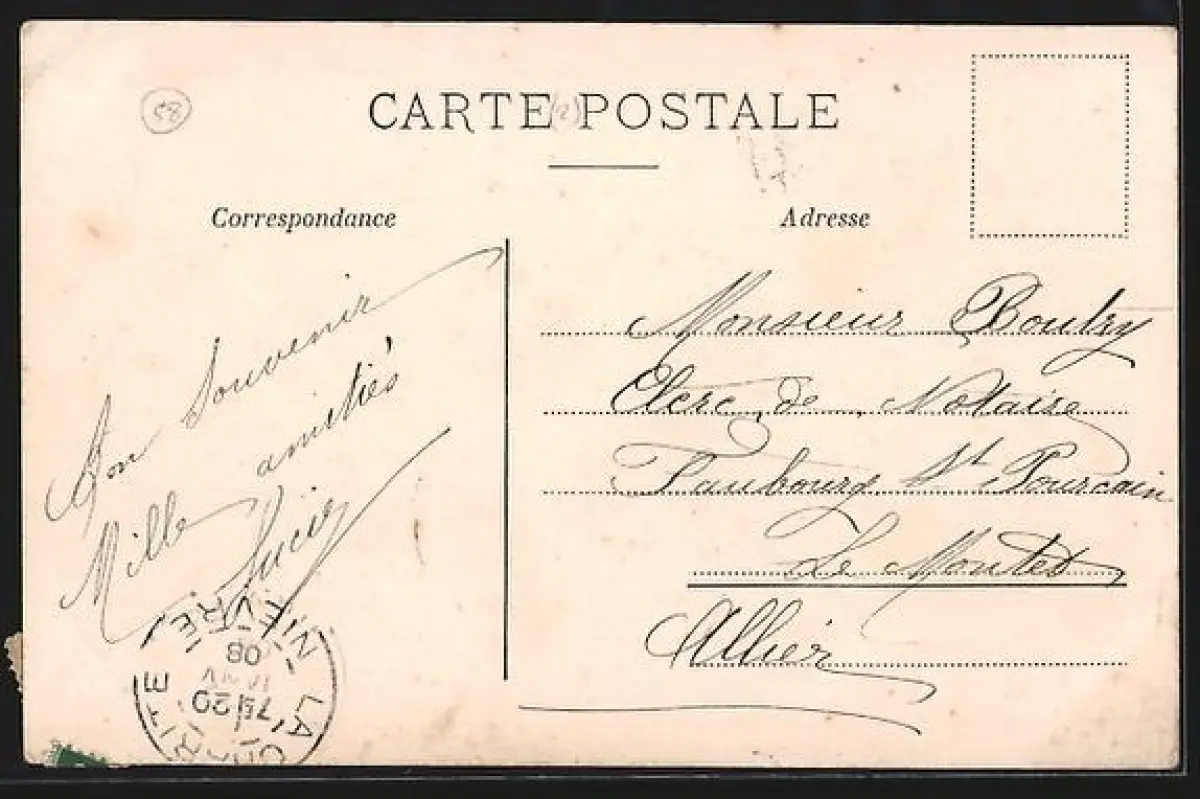 58
CARTE (2) POSTALE
Correspondance
Adresse
Bon Souvenir
Mille amitiés
Lucie
Monsieur Boutry
Clerc de Notaire
Faubourg St Pourcain
Le Montet
Allier
LA CHARITE
NIEVRE
7E 20
JANV
08